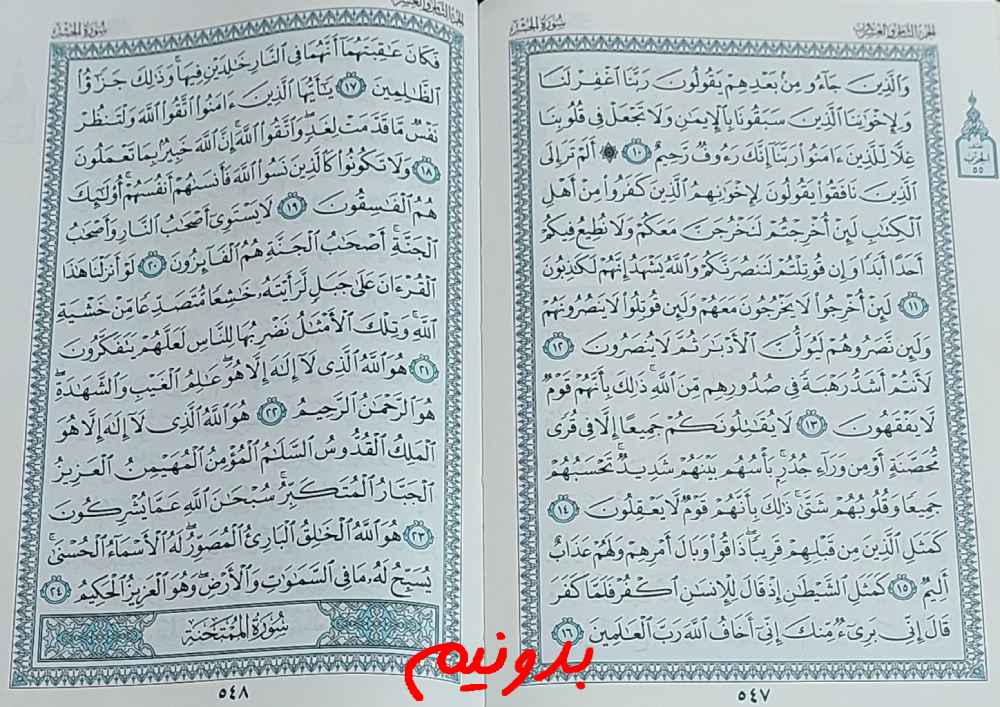 الجزء الثامن والعشرون
سورة الحشر
وَالَّذِينَ جَاءُو مِنْ بَعْدِهِمْ يَقُولُونَ رَبَّنَا اغْفِرْ لَنَا
وَلِإِخْوَانِنَا الَّذِينَ سَبَقُونَا بِالْإِيمَانِ وَلَا تَجْعَلْ فِي قُلُوبِنَا
غِلًّا لِلَّذِينَ ءَامَنُوا رَبَّنَا إِنَّكَ رَءُوفٌ رَحِيمٌ ١٠ ۞ أَلَمْ تَرَ إِلَى
الَّذِينَ نَافَقُوا يَقُولُونَ لِإِخْوَانِهِمُ الَّذِينَ كَفَرُوا مِنْ أَهْلِ
الْكِتَابِ لَئِنْ أُخْرِجْتُمْ لَنَخْرُجَنَّ مَعَكُمْ وَلَا نُطِيعُ فِيكُمْ
أَحَدًا أَبَدًا وَإِنْ قُوتِلْتُمْ لَنَنْصُرَنَّكُمْ وَاللَّهُ يَشْهَدُ إِنَّهُمْ لَكَاذِبُونَ
١١ لَئِنْ أُخْرِجُوا لَا يَخْرُجُونَ مَعَهُمْ وَلَئِنْ قُوتِلُوا لَا يَنْصُرُونَهُمْ
وَلَئِنْ نَصَرُوهُمْ لَيُوَلُّنَّ الْأَدْبَارَ ثُمَّ لَا يُنْصَرُونَ ١٢
لَأَنْتُمْ أَشَدُّ رَهْبَةً فِي صُدُورِهِمْ مِنَ اللَّهِ ذَلِكَ بِأَنَّهُمْ قَوْمٌ
لَا يَفْقَهُونَ ١٣ لَا يُقَاتِلُونَكُمْ جَمِيعًا إِلَّا فِي قُرًى
مُحَصَّنَةٍ أَوْ مِنْ وَرَاءِ جُدُرٍ بَأْسُهُمْ بَيْنَهُمْ شَدِيدٌ تَحْسَبُهُمْ
جَمِيعًا وَقُلُوبُهُمْ شَتَّى ذَلِكَ بِأَنَّهُمْ قَوْمٌ لَا يَعْقِلُونَ ١٤
كَمَثَلِ الَّذِينَ مِنْ قَبْلِهِمْ قَرِيبًا ذَاقُوا وَبَالَ أَمْرِهِمْ وَلَهُمْ عَذَابٌ
أَلِيمٌ ١٥ كَمَثَلِ الشَّيْطَانِ إِذْ قَالَ لِلْإِنْسَانِ اكْفُرْ فَلَمَّا كَفَرَ
قَالَ إِنِّي بَرِيءٌ مِنْكَ إِنِّي أَخَافُ اللَّهَ رَبَّ الْعَالَمِينَ ١٦
٥٤٧
نصف
الحزب
٥٥
الجزء الثامن والعشرون
سورة الحشر
فَكَانَ عَاقِبَتَهُمَا أَنَّهُمَا فِي النَّارِ خَالِدَيْنِ فِيهَا وَذَلِكَ جَزَاؤُا
الظَّالِمِينَ ١٧ يَاأَيُّهَا الَّذِينَ ءَامَنُوا اتَّقُوا اللَّهَ وَلْتَنْظُرْ
نَفْسٌ مَا قَدَّمَتْ لِغَدٍ وَاتَّقُوا اللَّهَ إِنَّ اللَّهَ خَبِيرٌ بِمَا تَعْمَلُونَ
١٨ وَلَا تَكُونُوا كَالَّذِينَ نَسُوا اللَّهَ فَأَنْسَاهُمْ أَنْفُسَهُمْ أُولَئِكَ
هُمُ الْفَاسِقُونَ ١٩ لَا يَسْتَوِي أَصْحَابُ النَّارِ وَأَصْحَابُ
الْجَنَّةِ أَصْحَابُ الْجَنَّةِ هُمُ الْفَائِزُونَ ٢٠ لَوْ أَنْزَلْنَا هَذَا
الْقُرْءَانَ عَلَى جَبَلٍ لَرَأَيْتَهُ خَاشِعًا مُتَصَدِّعًا مِنْ خَشْيَةِ
اللَّهِ وَتِلْكَ الْأَمْثَالُ نَضْرِبُهَا لِلنَّاسِ لَعَلَّهُمْ يَتَفَكَّرُونَ
٢١ هُوَ اللَّهُ الَّذِي لَا إِلَهَ إِلَّا هُوَ عَالِمُ الْغَيْبِ وَالشَّهَادَةِ
هُوَ الرَّحْمَنُ الرَّحِيمُ ٢٢ هُوَ اللَّهُ الَّذِي لَا إِلَهَ إِلَّا هُوَ
الْمَلِكُ الْقُدُّوسُ السَّلَامُ الْمُؤْمِنُ الْمُهَيْمِنُ الْعَزِيزُ
الْجَبَّارُ الْمُتَكَبِّرُ سُبْحَانَ اللَّهِ عَمَّا يُشْرِكُونَ
٢٣ هُوَ اللَّهُ الْخَالِقُ الْبَارِئُ الْمُصَوِّرُ لَهُ الْأَسْمَاءُ الْحُسْنَى
يُسَبِّحُ لَهُ مَا فِي السَّمَاوَاتِ وَالْأَرْضِ وَهُوَ الْعَزِيزُ الْحَكِيمُ ٢٤
سُورَةُ الْمُمْتَحَنَةِ
٥٤٨
بدونیم